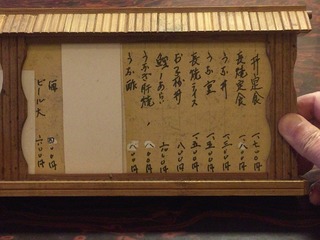 丼定食 一、七〇〇円
長焼定食 一、八〇〇円
うな丼 一、三〇〇円
うな重 一、五〇〇円
長焼ライス 一、五〇〇円
おこ様丼 八〇〇円
鯉あらい 六〇〇円
うなぎ肝焼 八〇〇円
うな酢 八〇〇円
酒 四〇〇円
ビール大 六〇〇円